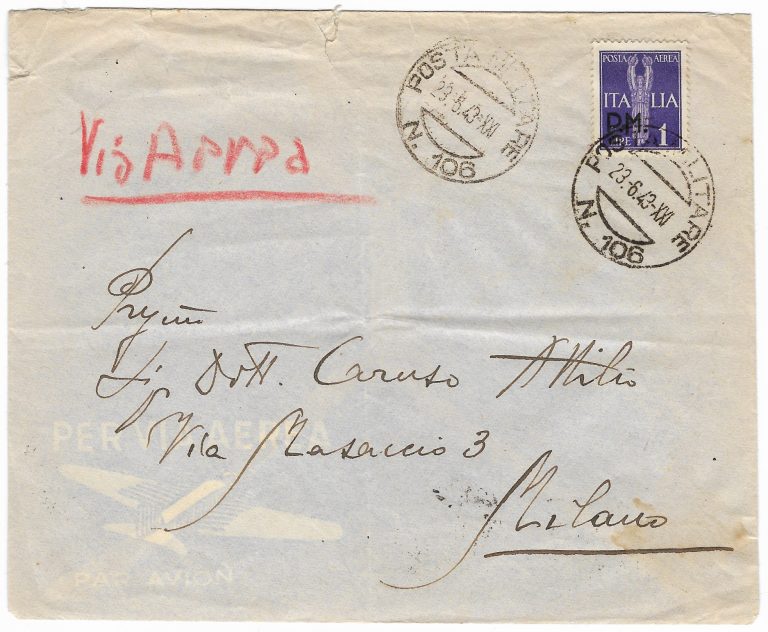 POSTA MILITARE
23.6.43-XXI
N. 106
POSTA AEREA
ITALIA
P.M.
LIRE 1
POSTA MILITARE
23.6.43-XXI
N. 106
Via Aerea
Sig Dott. Caruso Attilio
Via Masaccio 3
Milano
PER VIA AEREA
PAR AVION